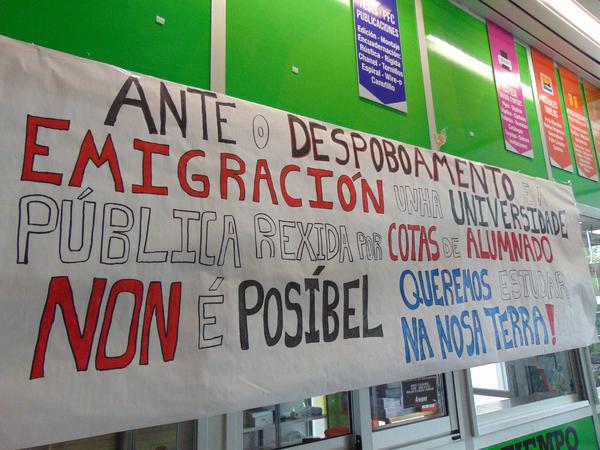 ANTE O DESPOBOAMENTO E A
EMIGRACIÓN UNHA UNIVERSIDADE
PÚBLICA REXIDA POR COTAS DE ALUMNADO
NON É POSÍBEL QUEREMOS ESTUDAR
NA NOSA TERRA!
TESIS - PFC
PUBLICACIONES
Edición - Montaje
Encuadernación:
Rústica - Rígida
Chanel - Tornillos
Espiral - Wire-o
Canutillo
TIEMPO